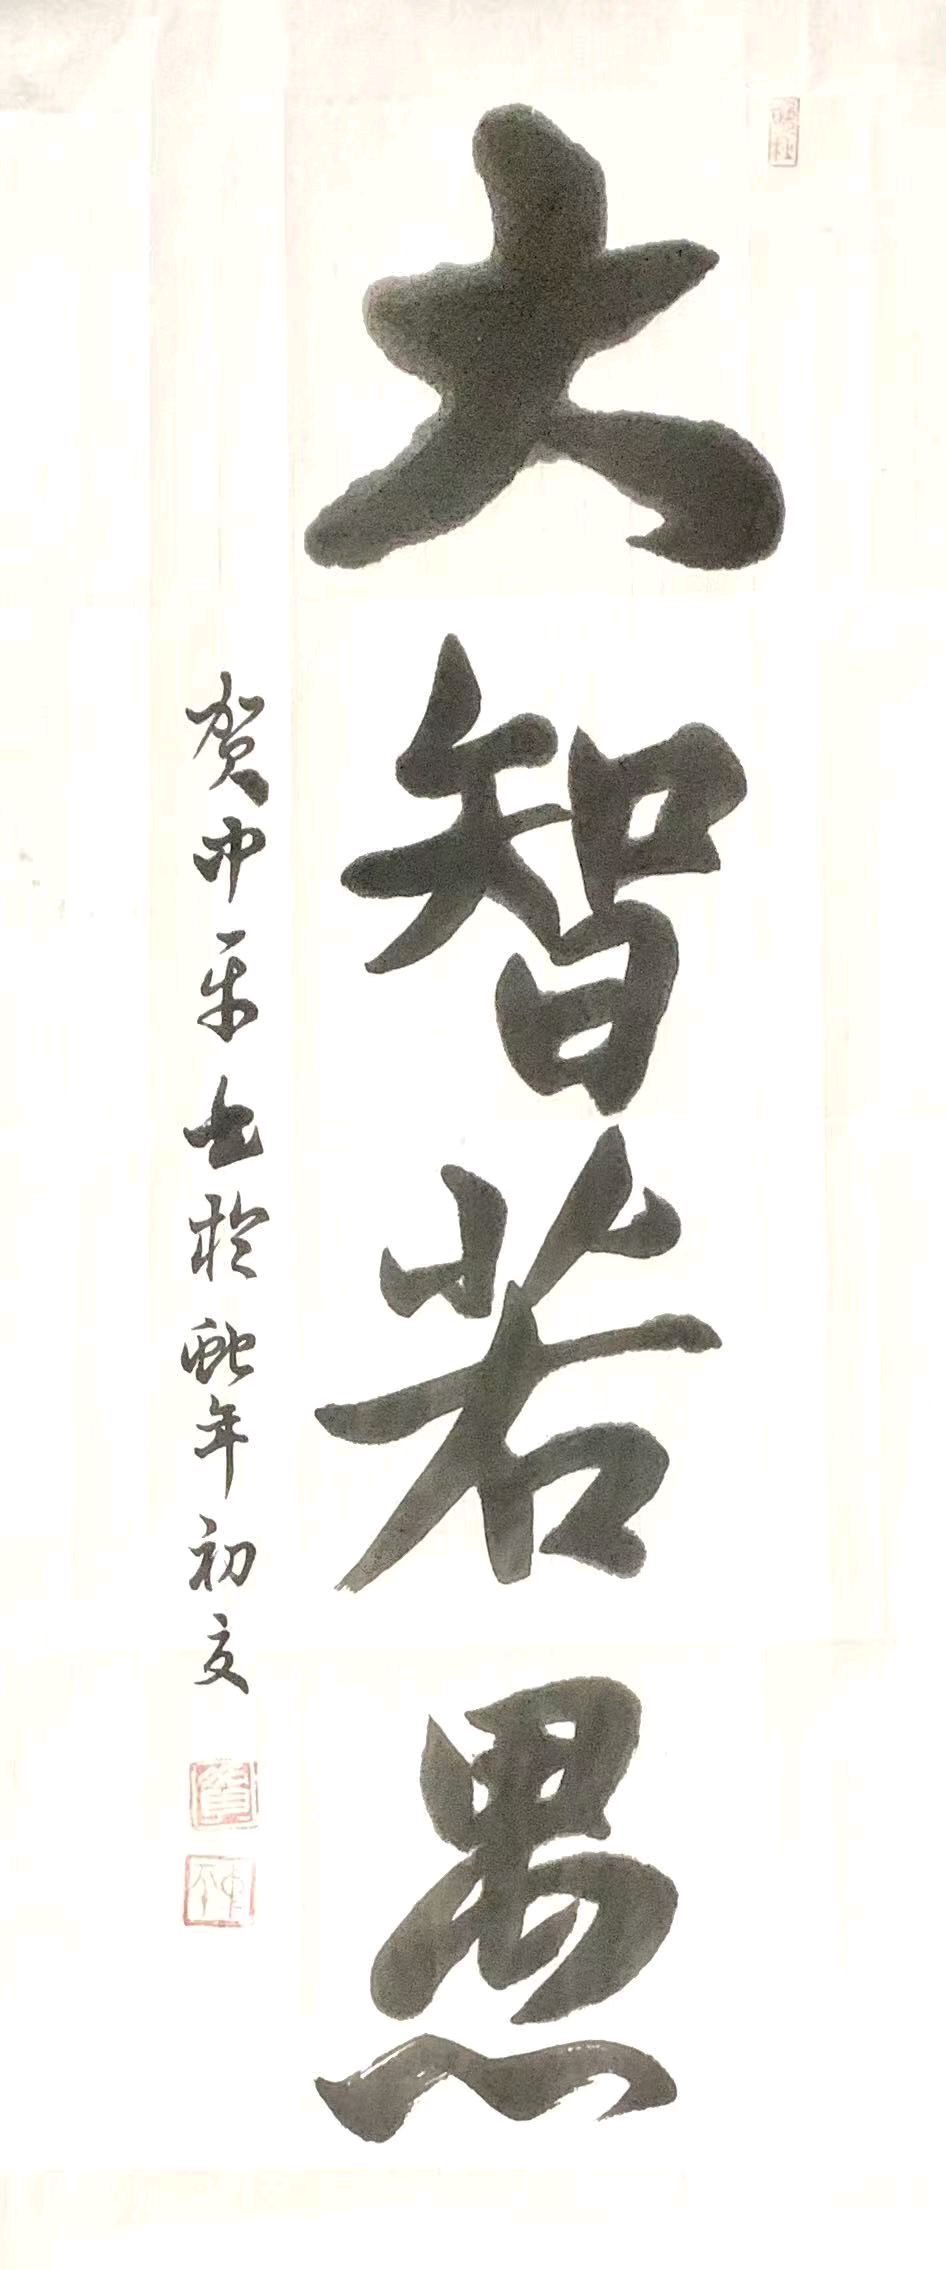 大智若愚
贺中平书於蛇年初夏